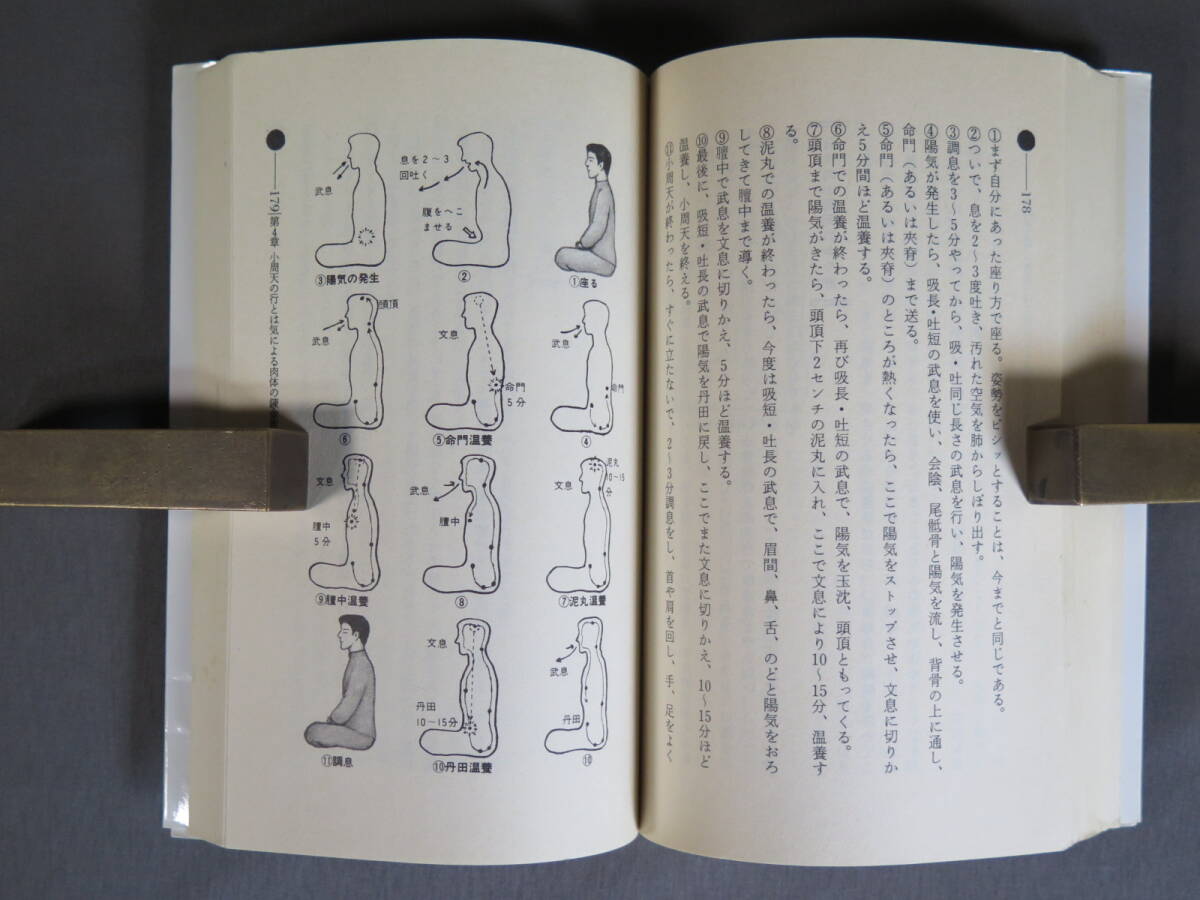 178
①まず自分にあった座り方で座る。姿勢をピシッとすることは、今までと同じである。
②ついで、息を2〜3度吐き、汚れた空気を肺からしぼり出す。
③調息を3〜5分やってから、吸・吐同じ長さの武息を行い、陽気を発生させる。
④陽気が発生したら、吸長・吐短の武息を使い、会陰、尾骶骨と陽気を流し、背骨の上に通し、
命門（あるいは夾脊）まで送る。
⑤命門（あるいは夾脊）のところが熱くなったら、ここで陽気をストップさせ、文息に切りか
え5分間ほど温養する。
⑥命門での温養が終わったら、再び吸長・吐短の武息で、陽気を玉沈、頭頂ともってくる。
⑦頭頂まで陽気がきたら、頭頂下2センチの泥丸に入れ、ここで文息により10〜15分、温養す
る。
⑧泥丸での温養が終わったら、今度は吸短・吐長の武息で、眉間、鼻、舌、のどと陽気をおろ
してきて膻中まで導く。
⑨膻中で武息を文息に切りかえ、5分ほど温養する。
⑩最後に、吸短・吐長の武息で陽気を丹田に戻し、ここでまた文息に切りかえ、10〜15分ほど
温養し、小周天を終える。
⑪小周天が終わったら、すぐに立たないで、2〜3分調息をし、首や肩を回し、手、足をよく
①座る
息を2〜3
回吐く
腹をへこ
ませる
②
武息
③陽気の発生
武息
命門
④
文息
命門
5分
⑤命門温養
頭頂
武息
⑥
泥丸
10〜15
分
文息
⑦泥丸温養
武息
膻中
⑧
文息
膻中
5分
⑨膻中温養
武息
丹田
⑩
文息
丹田
10〜15分
⑩丹田温養
⑪調息
179 第4章 小周天の行とは気による肉体の